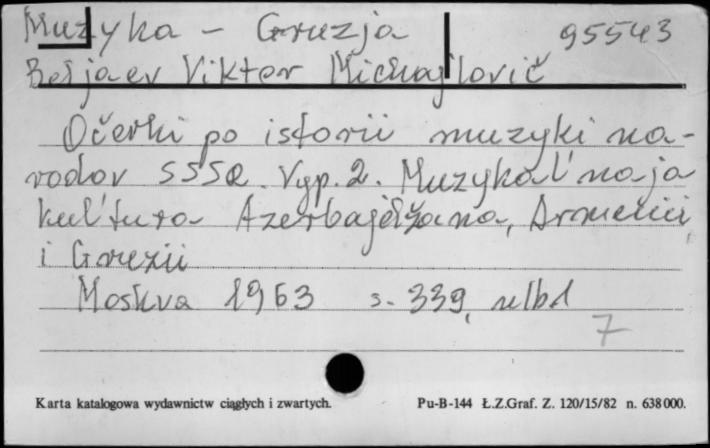 Muzyka - Gruzja 95543
Beljaev Viktor Michajlovič
Očerki po istorii muzyki na-
rodov SSSR. Vyp. 2. Muzykal'naja
kul'tura Azerbajdžana, Armenii
i Gruzii
Moskva 1963 s. 339,
7
Karta katalogowa wydawnictw ciągłych i zwartych. Pu-B-144 Ł.Z.Graf. Z. 120/15/82 n. 638000.